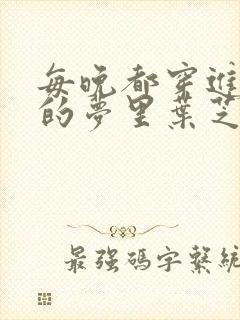 每晚都穿進
的夢里葉芝
最強碼字繫統